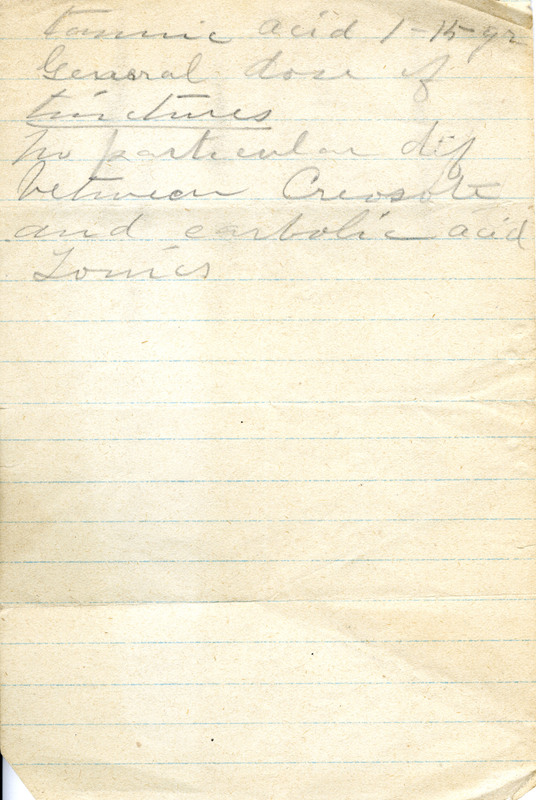 tannic acid 1-15-gr
General dose of
tinctures
no particular dif
between Creosote
and carbolic acid
Tonics